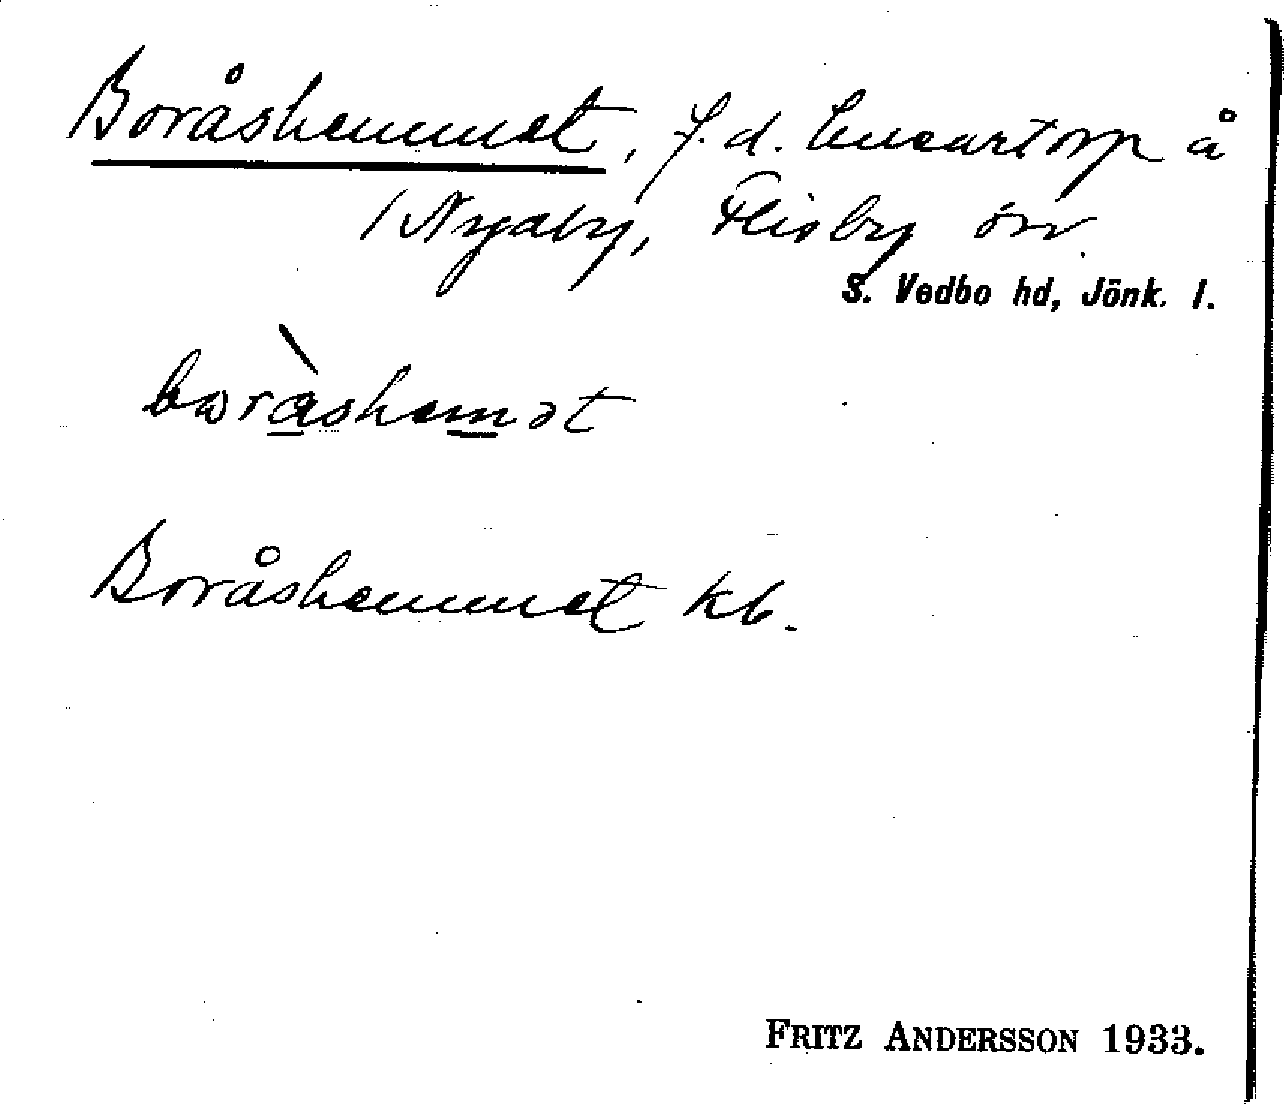 Boråshemmet, f. d. lucartorp å
1 Nydby, Flisby sn.
S. Vedbo hd, Jönk. l.
boràshemət
Boråshemmet kb.
FRITZ ANDERSSON 1933.